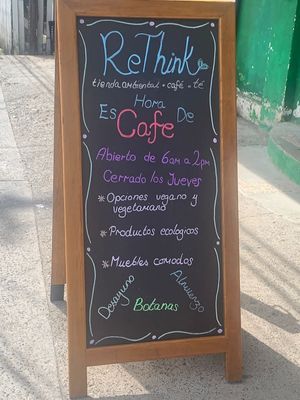 ReThink
tienda ambiental • café • té
Hora
Es De
Cafe
Abierto de 6am a 2pm
Cerrado los Jueves
* Opciones vegano y
vegetariano
* Productos ecologicos
* Muebles comodos
Desayuno Almuerzo
Botanas